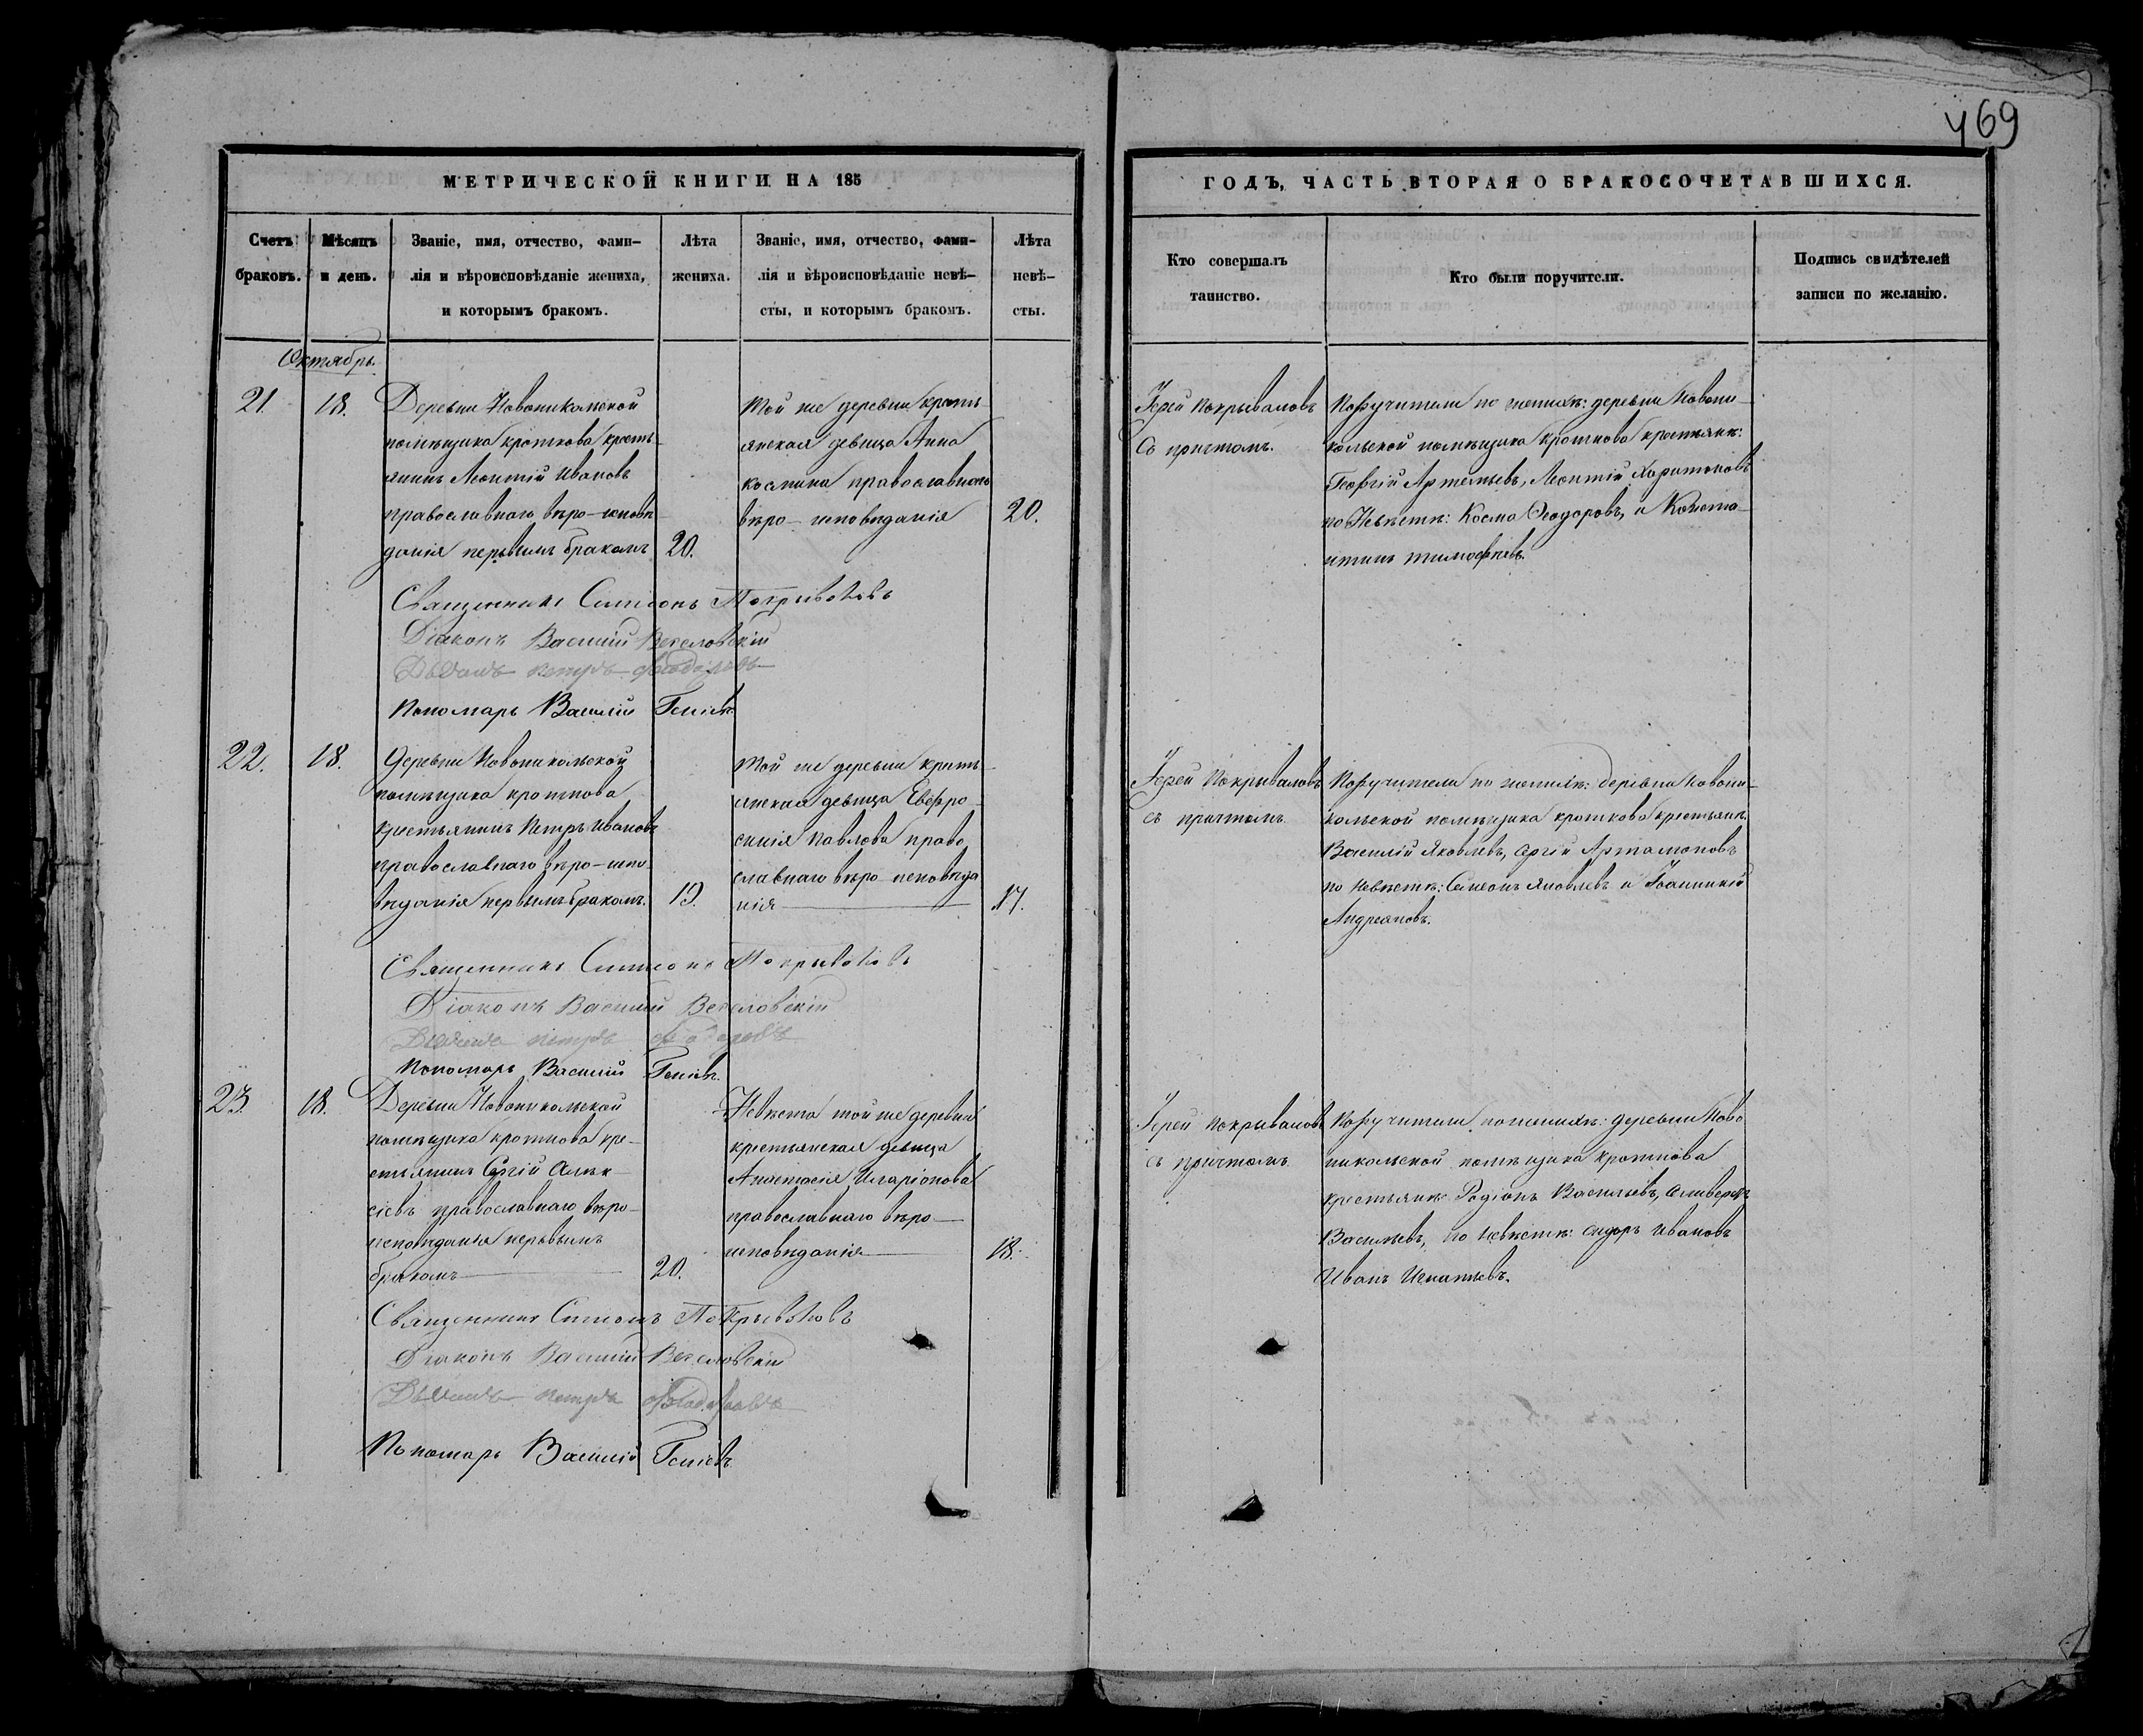 469
МЕТРИЧЕСКОЙ КНИГИ НА 185
Счетъ
браковъ.
Мѣсяцъ
и день.
Званіе, имя, отчество, фами-
лія и вѣроисповѣданіе жениха,
и которымъ бракомъ.
Лѣта
жениха.
Званіе, имя, отчество, фами-
лія и вѣроисповѣданіе невѣ-
сты, и которымъ бракомъ.
Лѣта
невѣ-
сты.
ГОДЪ, ЧАСТЬ ВТОРАЯ О БРАКОСОЧЕТАВШИХСЯ.
Кто совершалъ
таинство.
Кто были поручители.
Подпись свидѣтелей
записи по желанію.
Октябрь.
21.
18.
Деревни Новоникольской
помѣщика Кроткова кресть-
янинъ Леонтій Ивановъ
православнаго вѣро-исповѣ
данія первымъ бракомъ
20.
Той же деревни кресть-
янская девица Анна
Космина православнаго
вѣро-исповѣданія
20.
Іерей Покрываловъ
съ причтомъ.
Поручители по женихѣ: деревни Новони-
кольской помѣщика Кроткова крестьяне:
Георгій Артемьевъ, Леонтій Харитоновъ
по Невѣстѣ: Косма Ѳеодоровъ, и Конста-
нтинъ Тимофѣевъ.
Священникъ Симеонъ Покрываловъ
Діаконъ Василій Веселовскій
Дьячокъ Петръ
Пономарь Василій
22.
18.
Деревни Новоникольской
помѣщика Кроткова
крестьянинъ Петръ Ивановъ
православнаго вѣро-испо-
вѣданія первымъ бракомъ.
19.
Той же деревни кресть-
янская девица Евфро-
синія Павлова право
славнаго вѣро-исповѣда
нія
17.
Іерей Покрываловъ
съ причтомъ
Поручители по женихѣ: деревни Новони-
кольской помѣщика Кроткова крестьяне
Василій Яковлевъ, Сергій Артамоновъ
по Невѣстѣ: Симеонъ Яковлевъ и Іоанникій
Андреяновъ.
Священникъ Симеонъ Покрываловъ
Діаконъ Василій Веселовскій
Дьячокъ Петръ
Пономарь Василій
23.
18.
Деревни Новоникольской
помѣщика Кроткова кре-
стьянинъ Сергій Алек-
сіевъ православнаго вѣро-
исповѣданія первымъ
бракомъ
20.
Невѣста той же деревни
крестьянская девица
Анастасія Иларіонова
православнаго вѣро-
исповѣданія
18.
Іерей Покрываловъ
съ причтомъ
Поручители по женихѣ: деревни Ново
никольской помѣщика Кроткова
крестьяне Родіонъ Васильевъ,
Васильевъ, по Невѣстѣ: Сидоръ Ивановъ
Иванъ Игнатьевъ.
Священникъ Симеонъ Покрываловъ
Діаконъ Василій Веселовскій
Дьячокъ Петръ
Пономарь Василій